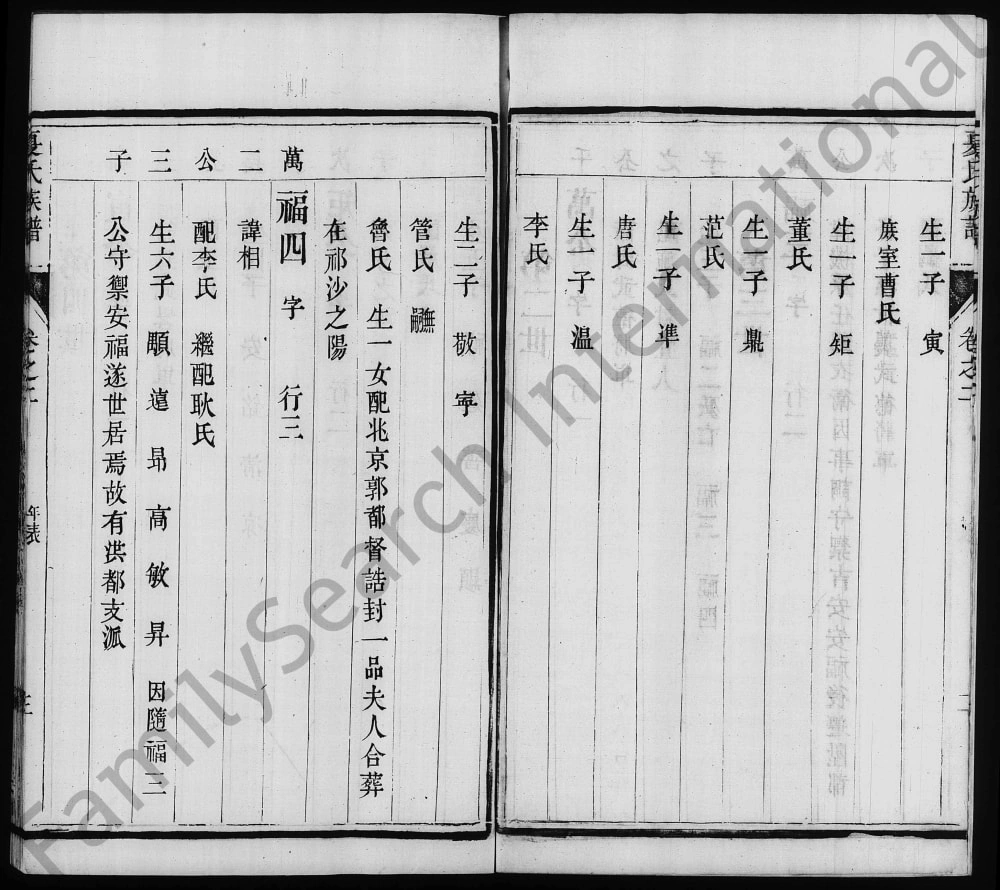 夏氏族譜
卷之二
二
生一子 寅
庶室曹氏
生一子 矩
董氏
生一子 鼎
范氏
生一子 準
唐氏
生一子 温
李氏
生二子 敬 寧
管氏
魯氏 生一女配北京郭都督誥封一品夫人合葬
在祁沙之陽
萬 福四 字 行三
二 諱相
公 配李氏 繼配耿氏
三 生六子 顒 遠 昻 高 敏 昇 因隨福三
子 公守禦安福遂世居焉故有洪都支派
夏氏族譜
卷之二
年表
三
FamilySearch International